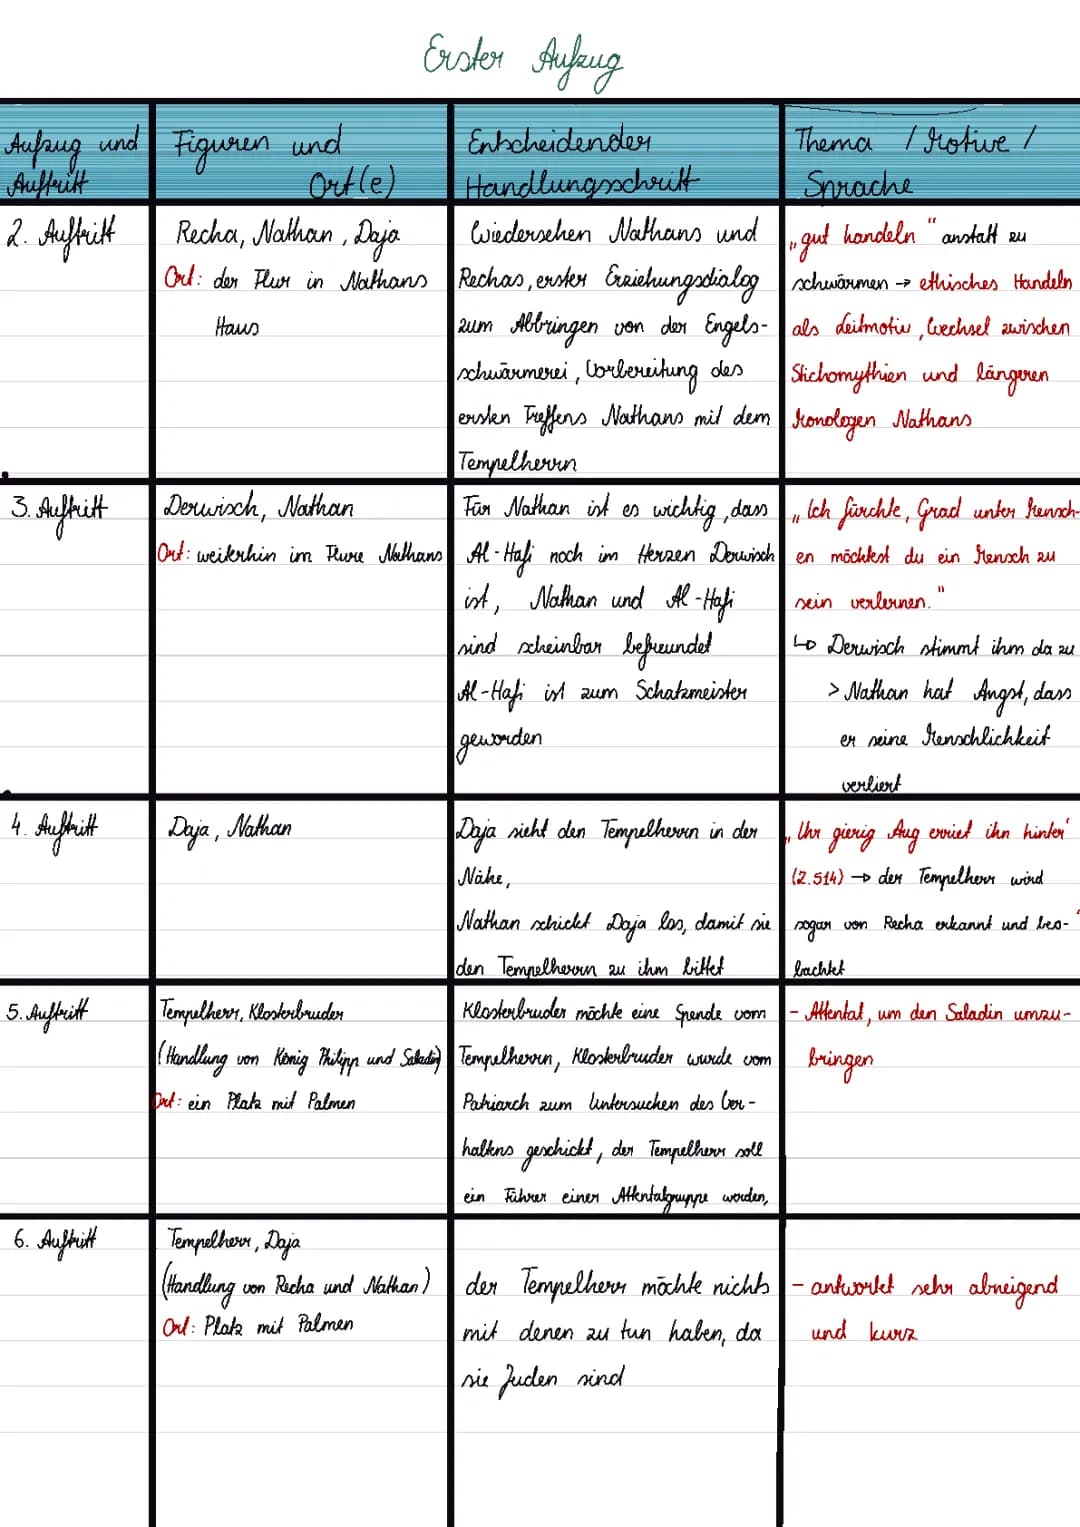 Erster Aufzug
Aufzug und
Auftritt
Figuren und
Ort(e)
Entscheidender
Handlungsschritt
Thema / Motive /
Sprache
2. Auftritt
Recha, Nathan, Daja
Ort: der Flur in Nathans
Haus
Wiedersehen Nathans und
Rechas, erster Erziehungsdialog
zum Abbringen von der Engels-
schwärmerei, Vorbereitung des
ersten Treffens Nathans mit dem
Tempelherrn
„gut handeln" anstatt zu
schwärmen → ethisches Handeln
als Leitmotiv, Wechsel zwischen
Stichomythien und längeren
Monologen Nathans
3. Auftritt
Derwisch, Nathan
Ort: weiterhin im Flure Nathans
Für Nathan ist es wichtig, dass
Al-Hafi noch im Herzen Derwisch
ist, Nathan und Al-Hafi
sind scheinbar befreundet
Al-Hafi ist zum Schatzmeister
geworden
„Ich fürchte, Grad unter Mensch-
en möchtest du ein Mensch zu
sein verlernen."
↳ Derwisch stimmt ihm da zu
> Nathan hat Angst, dass
er seine Menschlichkeit
verliert
4. Auftritt
Daja, Nathan
Daja sieht den Tempelherrn in der
Nähe,
Nathan schickt Daja los, damit sie
den Tempelherrn zu ihm bittet
„Ihr gierig Aug erriet ihn hinter"
(Z.514) → der Tempelherr wird
sogar von Recha erkannt und beo-
bachtet
5. Auftritt
Tempelherr, Klosterbruder
(Handlung von König Philipp und Saladin)
Ort: ein Platz mit Palmen
Klosterbruder möchte eine Spende vom
Tempelherrn, Klosterbruder wurde vom
Patriarch zum Untersuchen des Ver-
haltens geschickt, der Tempelherr soll
ein Führer einer Attentatgruppe werden,
- Attentat, um den Saladin umzu-
bringen
6. Auftritt
Tempelherr, Daja
(Handlung von Recha und Nathan)
Ort: Platz mit Palmen
der Tempelherr möchte nichts
mit denen zu tun haben, da
sie Juden sind
- antwortet sehr abneigend
und kurz